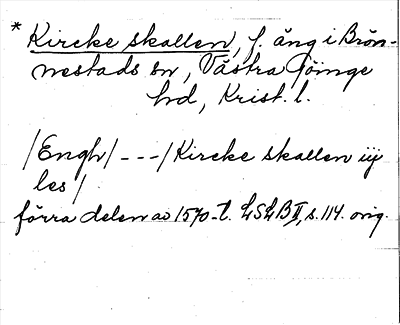 * Kircke skallen, f. äng i Brön-
nestads sn, Västra Göinge
hd, Krist. l.
/Engh/ - - - / Kircke skallen iij
les /
förra delen av 1570-t. LSLB II, s. 114. orig.